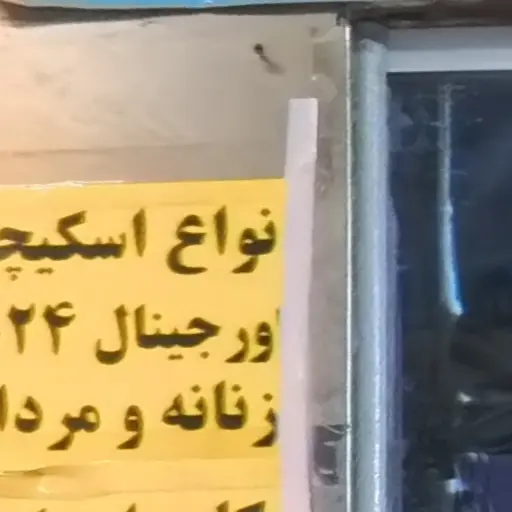 نواع اسکیچ
اورجینال ۲۴
زنانه و مردا